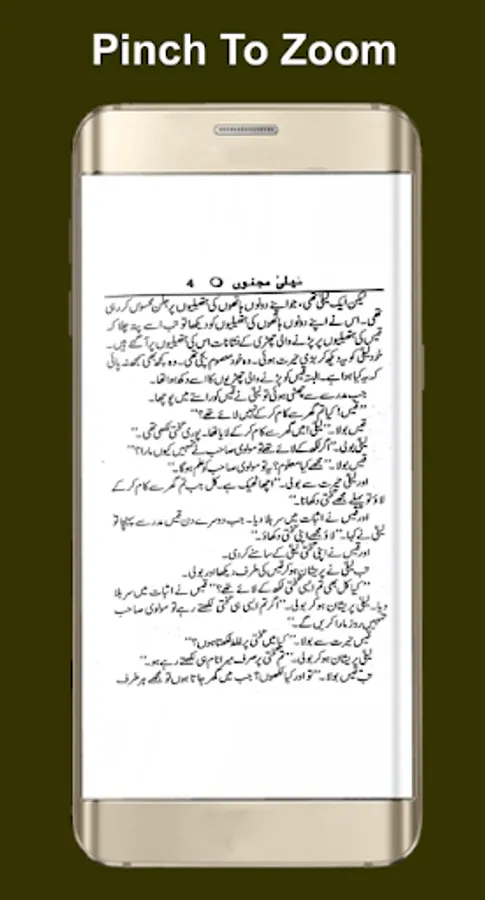 Pinch To Zoom
لیلیٰ مجنوں O 4
لیکن ایک لیلیٰ تھی، جو اپنے دونوں ہاتھوں کی ہتھیلیوں پر جلن محسوس کر رہی
تھی۔ اس نے اپنے دونوں ہاتھوں کی ہتھیلیوں کو دیکھا تو تب اسے پتہ چلا کہ
قیس کی ہتھیلیوں پر پڑنے والی چھڑی کے نشانات اس کی ہتھیلیوں پر آ گئے ہیں۔
خود لیلیٰ کو یہ دیکھ کر بڑی حیرت ہوئی۔ وہ خود معصوم بچی تھی۔ وہ کچھ بھی سمجھ نہ پائی
کہ یہ کیا ہوا ہے۔ البتہ قیس کو پڑنے والی چھڑیوں کا اسے دکھ ہوا تھا۔
جب مدرسے سے چھٹی ہوئی تو لیلیٰ نے قیس کو راستے میں پوچھا۔
”قیس! کیا تم گھر سے کام کر کے نہیں لائے تھے؟“
قیس بولا۔ ”لیلیٰ! میں گھر سے کام کر کے لایا تھا۔ پوری تختی لکھی تھی۔“
لیلیٰ بولی۔ ”اگر لکھ کے لائے تھے تو مولوی صاحب نے تمہیں کیوں مارا؟“
قیس بولا۔ ”مجھے کیا معلوم! یہ تو مولوی صاحب کو علم ہو گا۔“
اور لیلیٰ حیرت سے بولی۔ ”اچھا ٹھیک ہے۔ کل جب تم گھر سے کام کر کے
لاؤ تو پہلے مجھے تختی دکھانا۔“
اور قیس نے اثبات میں سر ہلا دیا۔ جب دوسرے دن قیس مدرسے پہنچا تو
لیلیٰ نے کہا۔ ”لاؤ مجھے اپنی تختی دکھاؤ۔“
اور قیس نے اپنی تختی لیلیٰ کے سامنے کر دی۔
تب لیلیٰ نے پریشان ہو کر قیس کی طرف دیکھا اور بولی۔
”کیا کل بھی تم ایسی تختی لکھ کے لائے تھے؟“ قیس نے اثبات میں سر ہلا
دیا۔ لیلیٰ پریشان ہو کر بولی۔ ”اگر تم ایسی ہی تختی لکھتے رہے تو مولوی صاحب
تمہیں روز مارا کریں گے۔“
قیس حیرت سے بولا۔ ”کیا میں تختی پر غلط لکھتا ہوں؟“
لیلیٰ پریشان ہو کر بولی۔ ”تم تختی پر صرف میرا نام ہی لکھتے رہے ہو۔“
تب قیس بولا۔ ”تو اور کیا لکھوں؟ جب میں گھر جاتا ہوں تو مجھے ہر طرف